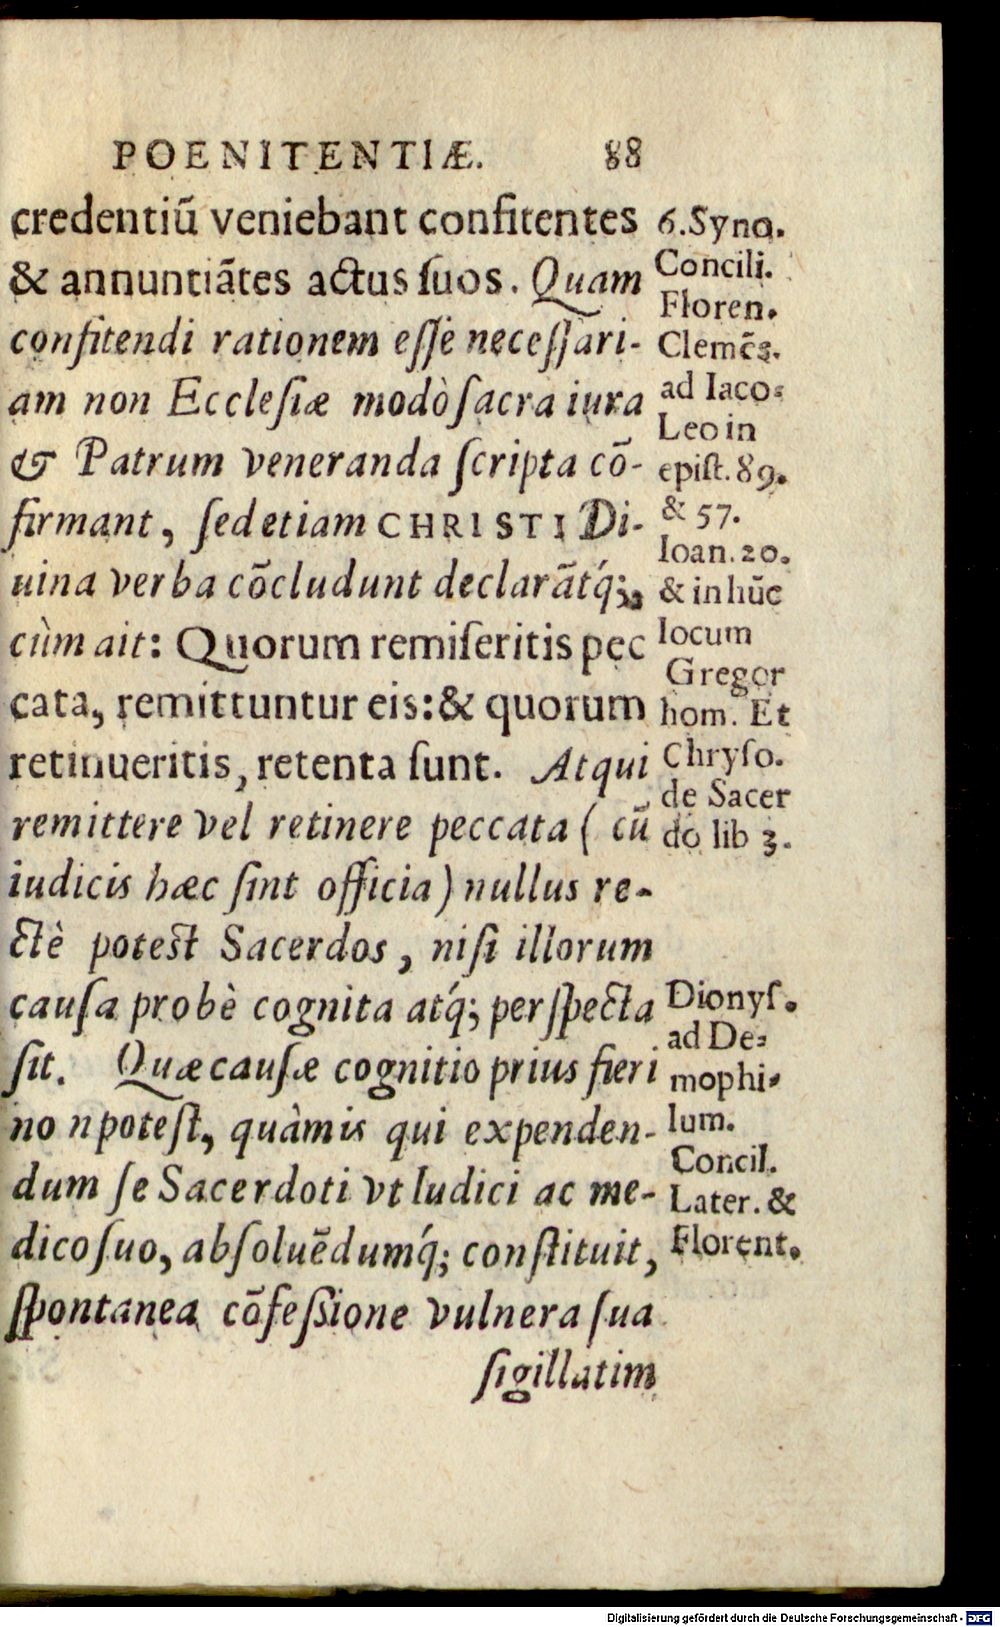 POENITENTIÆ. 88
credentiū veniebant confitentes
& annuntiãtes actus ſuos. Quam
confitendi rationem eſſe neceſſari-
am non Eccleſiæ modò ſacra iura
& Patrum veneranda ſcripta cō-
firmant, ſed etiam CHRISTI Di-
uina verba cōcludunt declarãtq́;,
cùm ait: Quorum remiſeritis pec
cata, remittuntur eis: & quorum
retinueritis, retenta ſunt. Atqui
remittere vel retinere peccata ( cū
iudicis hæc ſint officia) nullus re-
ctè poteſt Sacerdos, niſi illorum
cauſa probè cognita atq́; perſpecta
ſit. Quæ cauſæ cognitio prius fieri
no npoteſt, quàm is qui expenden-
dum ſe Sacerdoti vt Iudici ac me-
dico ſuo, abſoluēdumq́; conſtituit,
ſpontanea cōfeſſione vulnera ſua
ſigillatim
6. Syno.
Concili.
Floren.
Clemēs.
ad Iaco-
Leo in
epiſt. 89.
& 57.
Ioan. 20.
& in hūc
locum
Gregor
hom. Et
Chryſo.
de Sacer
do lib 3.
Dionyſ.
ad De-
mophi-
lum.
Concil.
Later. &
Florent.
Digitalisierung gefördert durch die Deutsche Forschungsgemeinschaft - DFG